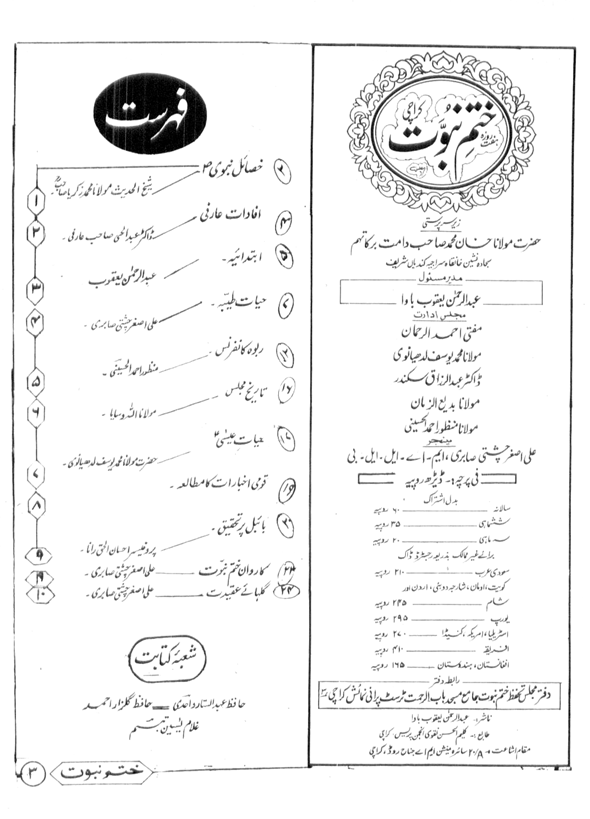 ختم نبوت
کراچی
ہفت روزہ
زیر سرپرستی
حضرت مولانا خان محمد صاحب دامت برکاتہم
سجادہ نشین خانقاہ سراجیہ کندیاں شریف
مدیر مسئول
عبدالرحمٰن یعقوب باوا
مجلس ادارت
مفتی احمد الرحمان
مولانا محمد یوسف لدھیانوی
ڈاکٹر عبدالرزاق سکندر
مولانا بدیع الزمان
مولانا منظور احمد الحسینی
مینجر
علی اصغر چشتی صابری، ایم۔اے۔ایل۔ایل۔بی
فی پرچہ:۔ ڈیڑھ روپیہ
بدل اشتراک
سالانہ ۶۰ روپیہ
ششماہی ۳۵ روپیہ
سہ ماہی ۲۰ روپیہ
برائے غیر ممالک بذریعہ رجسٹرڈ ڈاک
سعودی عرب ۲۱۰ روپیہ
کویت، اومان، شارجہ دوبئی، اردن اور
شام ۲۴۵ روپیہ
یورپ ۲۹۵ روپیہ
آسٹریلیا، امریکہ، کنیڈا ۲۷۰ روپیہ
افریقہ ۴۱۰ روپیہ
افغانستان، ہندوستان ۱۶۵ روپیہ
رابطہ دفتر
دفتر مجلس تحفظ ختم نبوت جامع مسجد باب الرحمت ٹرسٹ پرانی نمائش کراچی
ناشر:۔ عبدالرحمٰن یعقوب باوا
طابع:۔ کلیم الحسن نقوی انجمن پریس کراچی
مقام اشاعت:۔ ۲۰/۸ سائرہ مینشن ایم اے جناح روڈ، کراچی
فہرست
۱ خصائل نبوی ۲
شیخ الحدیث مولانا محمد زکریا صاحب
۲ افادات عارفی ۴
ڈاکٹر عبدالحئی صاحب عارفی۔
۳ ابتدائیہ۔ ۵
عبدالرحمٰن یعقوب
۴ حیات طیبہ۔ ۷
علی اصغر چشتی صابری۔
۵ ربوہ کانفرنس۔ ۱۲
منظور احمد الحسینی۔
۶ تاریخ مجلس ۱۶
مولانا اللہ وسایا۔
۷ حیات عیسیٰ ۱۷
حضرت مولانا محمد یوسف لدھیانوی۔
۸ قومی اخبارات کا مطالعہ۔ ۱۹
۹ بائبل پر تحقیق۔
پروفیسر احسان الحق رانا۔
کاروان ختم نبوت علی اصغر چشتی صابری۔ ۲۳
۱۰ گلہائے عقیدت علی اصغر چشتی صابری۔ ۲۴
شعبۂ کتابت
حافظ عبدالستار واحدی حافظ گلزار احمد
غلام یٰسین تبسم
ختم نبوت ۳